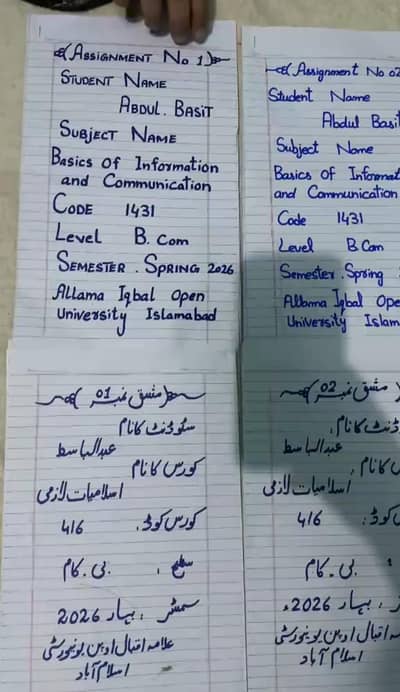 Assignment No 1
Student Name
Abdul. Basit
Subject Name
Basics Of Information
and Communication
Code 1431
Level B. Com
Semester. Spring 2026
Allama Iqbal Open
University Islamabad
Assignment No 02
Student Name
Abdul Basit
Subject Name
Basics of Informat
and Communication
Code 1431
Level B Com
Semester. Spring
Allama Iqbal Ope
University Islam
مشق نمبر 01
سٹوڈنٹ کا نام
عبدالباسط
کورس کا نام
اسلامیات لازمی
کورس کوڈ. 416
سطح. بی.کام
سمسٹر. بہار 2026
علامہ اقبال اوپن یونیورسٹی
اسلام آباد
مشق نمبر 02
ڈنٹ کا نام.
عبدالباسط
کا نام.
اسلامیات لازمی
کوڈ: 416
بی.کام
بہار 2026ء
اقبال اوپن یونیورسٹی
اسلام آباد